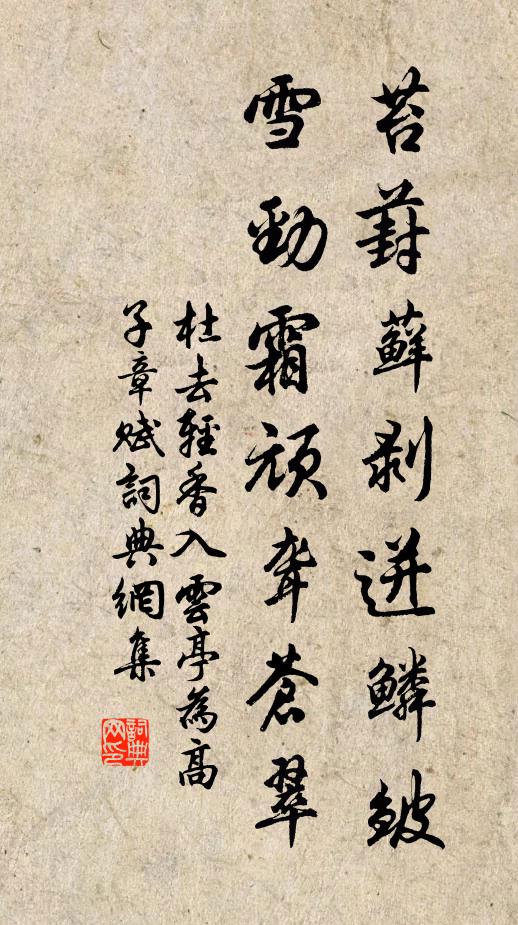 苔葑蘚剥迸鱗皴
雪勁霜頑聳蒼翠
杜去輕香入雲亭為高
子章賦詞典網集
詞典
网印